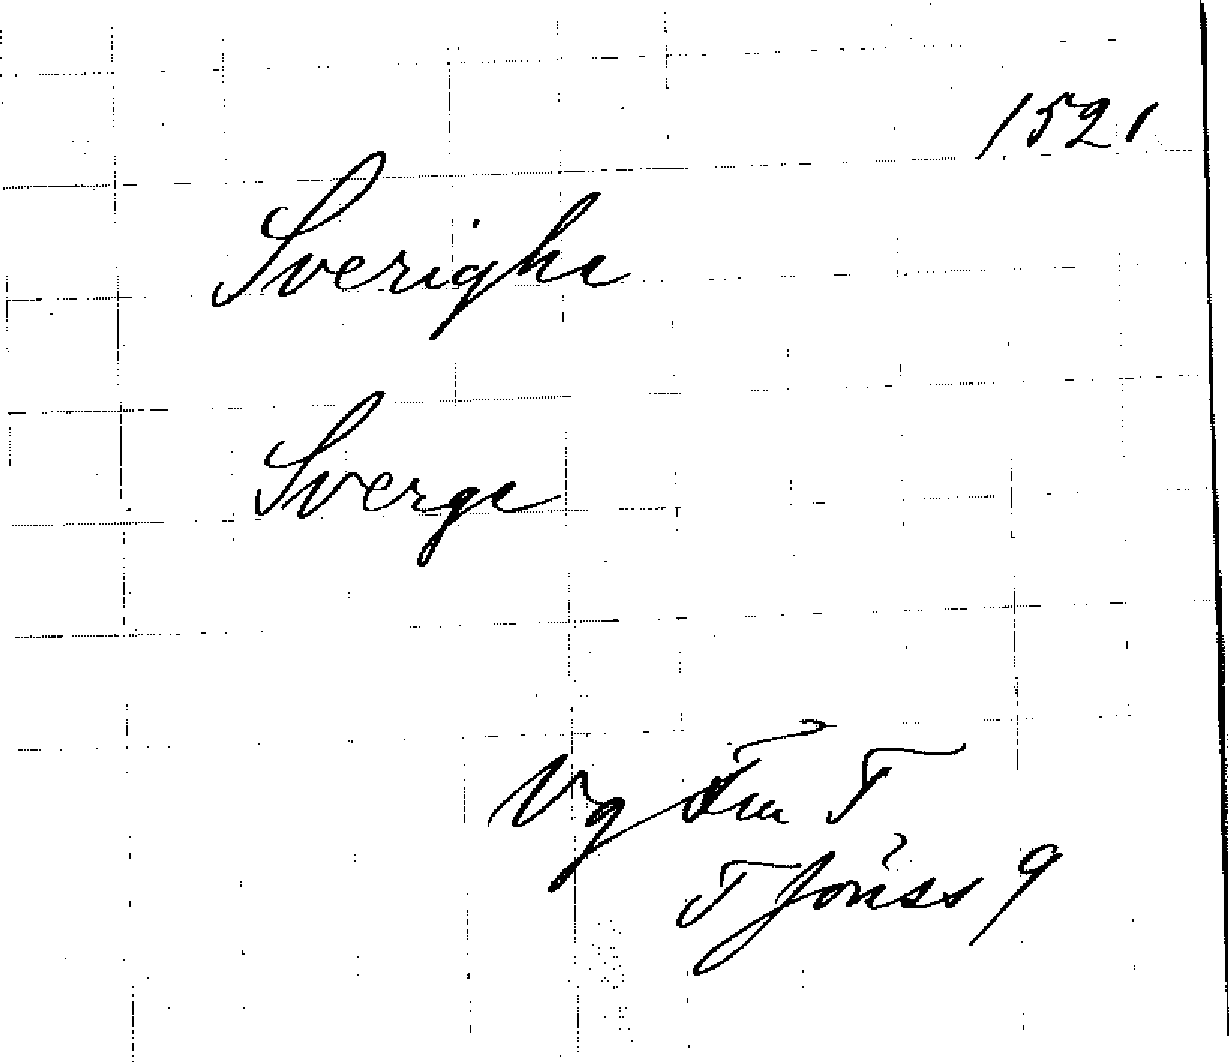 1521
Sverighe
Sverge
Vg Fru T
T Jönss 9